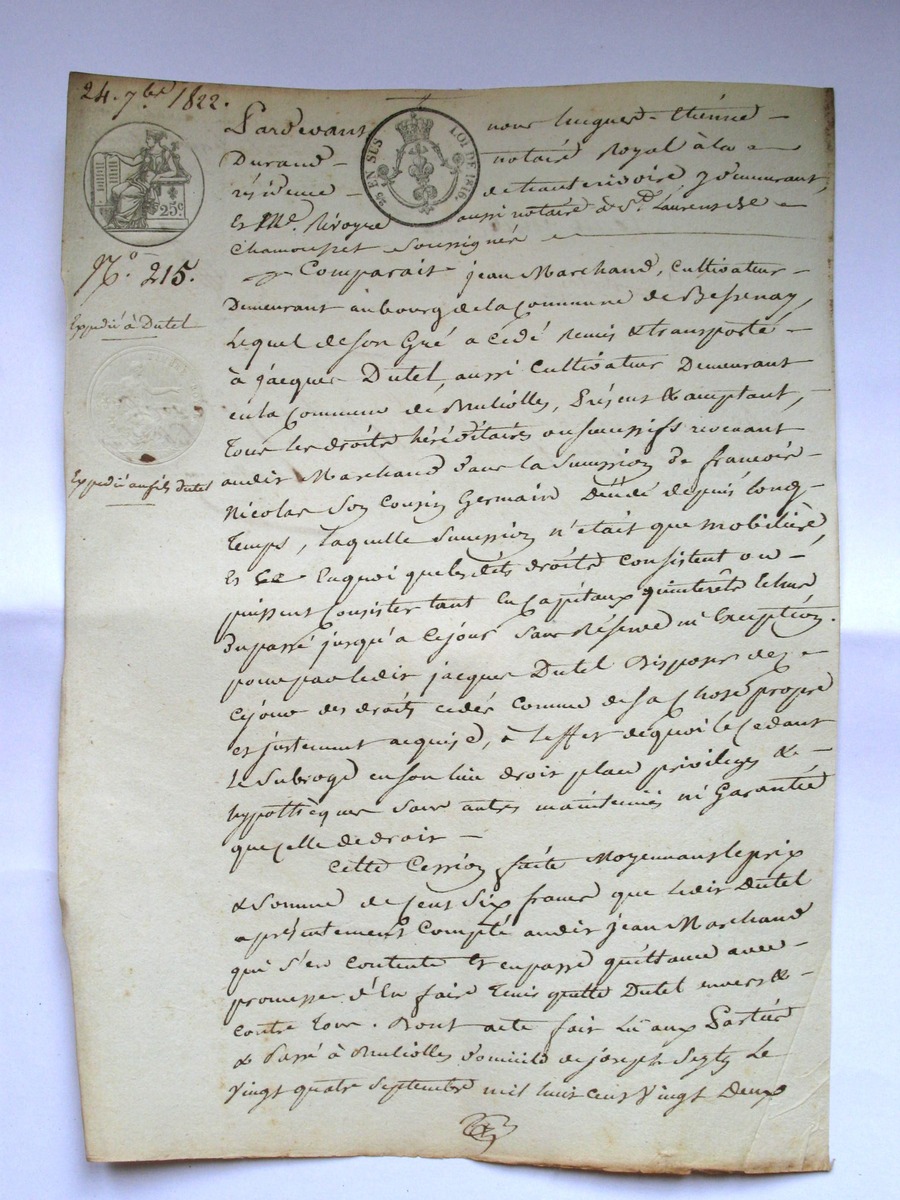 24. 7bre 1822.
Pardevant nous hugues Etienne
Durand notaire Royal à la
résidence de hauterivoire y demeurant,
et Me. Rivoyre aussi notaire de St. Laurent de
Chamousset soussignés
EN SUS
LOI DE 1816.
25c
No. 215.
Expedié à Dutel
Expedié au fils dutel
Comparait jean Marchand, cultivateur
Demeurant au bourg de la Commune de Bessenay,
Lequel de son Gré a cédé remis & transporté
à jacques Dutel, aussi Cultivateur Demeurant
en la Commune de Bruliolles, Présent & acceptant,
Tous les droits héréditaires ou successifs revenant
audit Marchand dans la succession de francois
Nicolas son Cousin Germain Décédé depuis long-
Temps, Laquelle succession n'était que mobilière
et ce En quoi que lesdits droits consistent ou
puissent Consister tant En Capitaux qu'interêts Echus
du passé jusqu'à ce jour sans Réserve ni Exception.
pour par ledit jacques Dutel disposer dez
ce jour des droits cedés comme de sa chose propre
et justement acquise, à L'effet de quoi le Cedant
Le Subroge en son lieu droit place privileges &
hypothèques sans autres maintenües ni Garantie
que celle de droit
Cette Cession faite Moyennant le prix
& Somme de Cent Six francs que ledit Dutel
a présentement Compté audit jean Marchand
qui s'en Contente Et en passe quittance avec
promesse d'En faire Tenir quitte Dutel envers &
contre Tous. Dont acte fait Lu aux Parties
& Passé à Brulliolles domicile de joseph
Le
Vingt quatre Septembre mil huit cent Vingt Deux